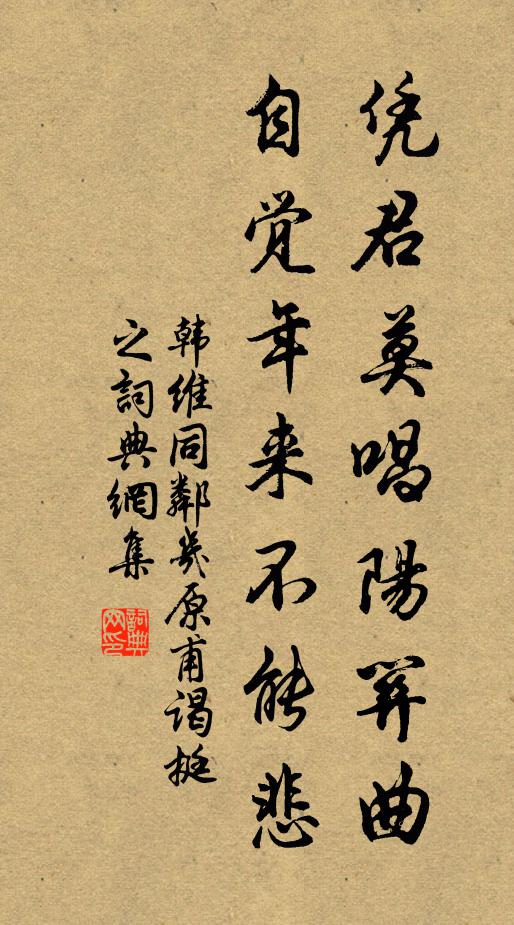 凭君莫唱陽関曲
自觉年来不能悲
韩維同鄰幾原甫谒挺
之詞典網集
詞典
网印